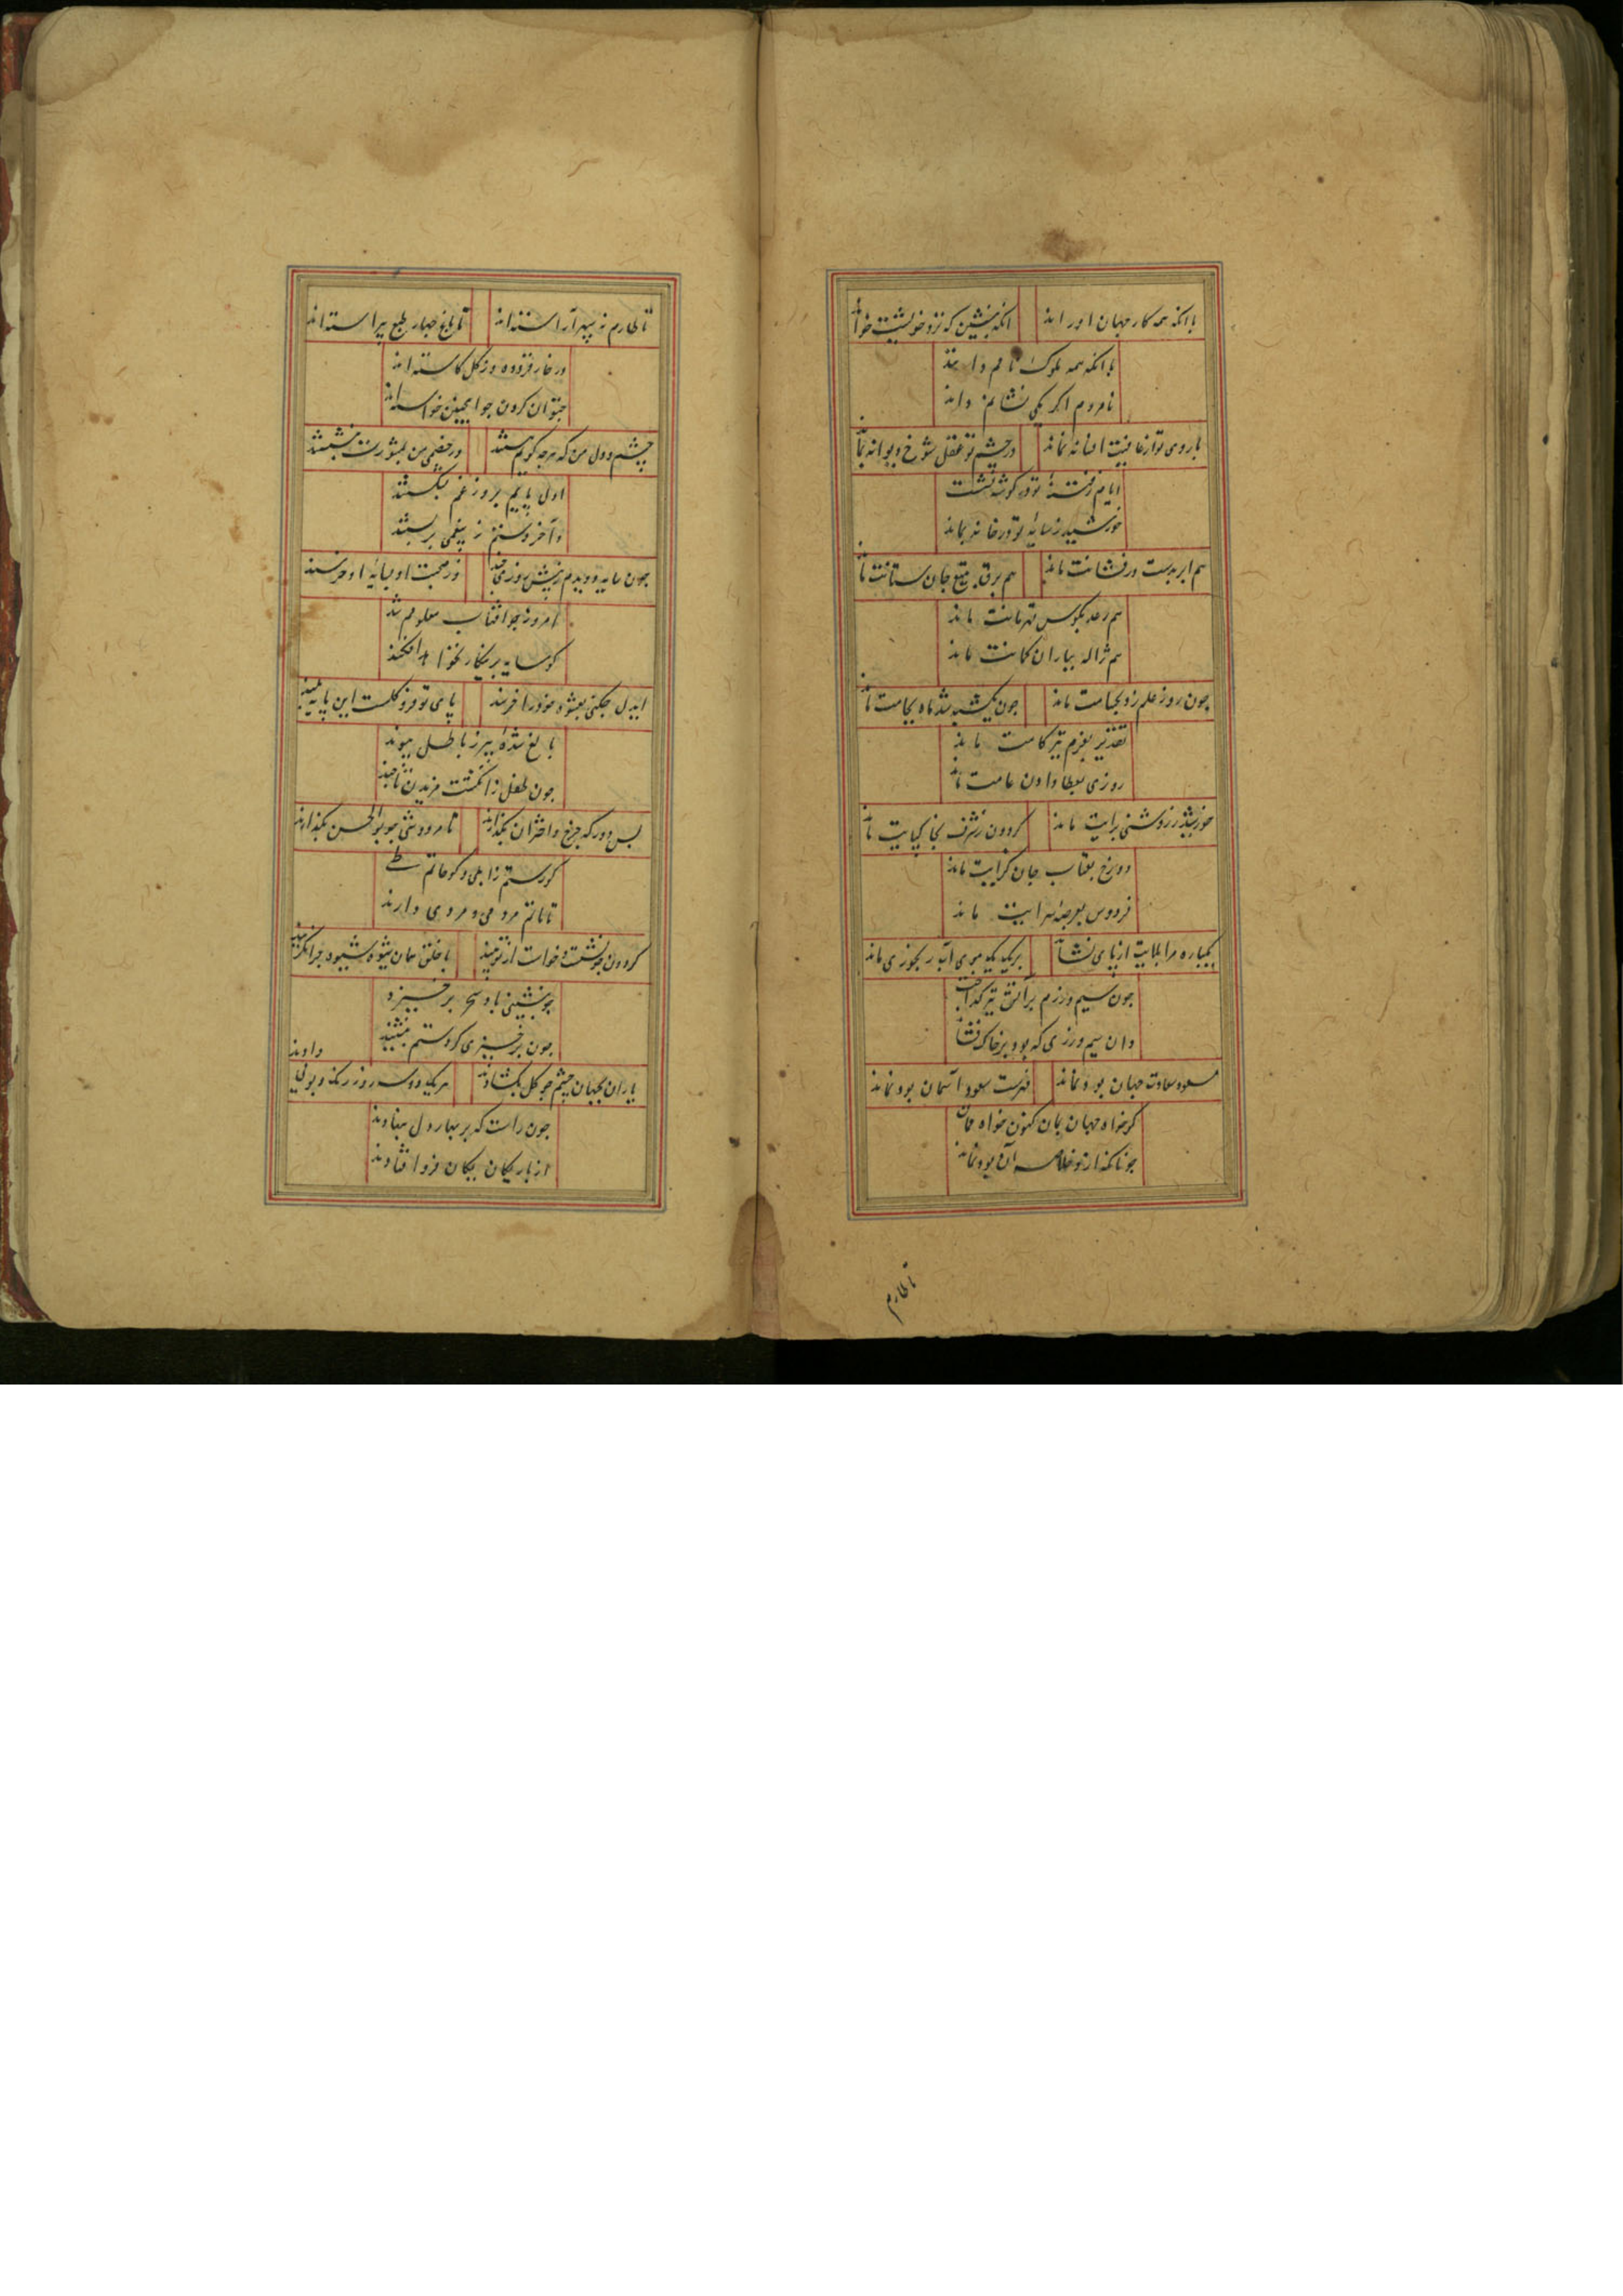 با آنکه همه کار جهان او راند
آنکه بنشین که نزد خویشت خواند
با آنکه همه ملوک نامم دانند
نامردم اگر یکی نشانم داند
با روی تو از عافیت افسانه نماند
در چشم تو عقل شوخ و دیوانه نماند
ایام ز فتنهٔ تو در گوشه نشست
خورشید ز سایهٔ تو در خانه بماند
هم ابر بدست درفشانت ماند
هم برق به تیغ جان ستانت ماند
هم رعد بکوس قهرمانت ماند
هم ژاله بباران کمانت ماند
چون روز علم زد بحسامت ماند
چون یکشبه شد ماه بجامت ماند
تقدیر بعزم تیز کامت ماند
روزی بعطا دادن عامت ماند
خورشید ز روشنی برایت ماند
گردون ز شرف بخاکپایت ماند
دوزخ بعتاب جان گزایت ماند
فردوس بعرصهٔ سرایت ماند
یکباره مرا بلایت از پای نشاند
بر یک بیکم بوی آب ریحوزی ماند
چون سیم و زرم بر آتش تیز گداخت
وان سیم و زری که بود بر خاک فشاند
مسعود سعادت جهان بود و نماند
فهرست سعود آسمان بود و نماند
گر خواه جهان بمان کنون خواه ممان
چونانکه ازو خلاصه آن بود و نماند
تا طارم
تا طارم نه سپهر آراسته‌اند
تا باغ چهار طبع پیراسته‌اند
در خار فزوده وز گل کاسته‌اند
چتوان کردن چو اینچنین خواسته‌اند
چشم و دل من که هرچه گویم هستند
در خصمی من بمشورت بنشستند
اول پایم بروز غم بشکستند
وآخر دستم ز بیغمی بربستند
چون سایه دویدم ز پیش روزی چند
وز صحبت او بسایهٔ او خرسند
امروز چو آفتاب معلومم شد
کو سایه بر ینکار نخواهد افکند
ایدل چکنی بعشوه خود را خرسند
پای تو فرو گلست این پایه بلند
بالغ شده‌ای ببر ز باطل پیوند
چون طفل ز انگشت مزیدن تا چند
بس دور که چرخ و اختران بگذارند
تا مرد وشی چو بوالحسن بگذارند
کو رستم زابلی و کو حاتم طی
تا ماتم مردمی و مردی دارند
گردون چو نشست و خواست از تو بیند
با خلق همان شیوه چرا نگزیند
چو بنشینی باد سحر برخیزد
چون برخیزی گرد ستم بنشیند
یاران بجهان چشم چو گل بگشادند
هر یک دو سه روز رنگ و بوئی دادند
چون راست که بر بهار دل بنهادند
از بار یکان یکان فرو افتادند